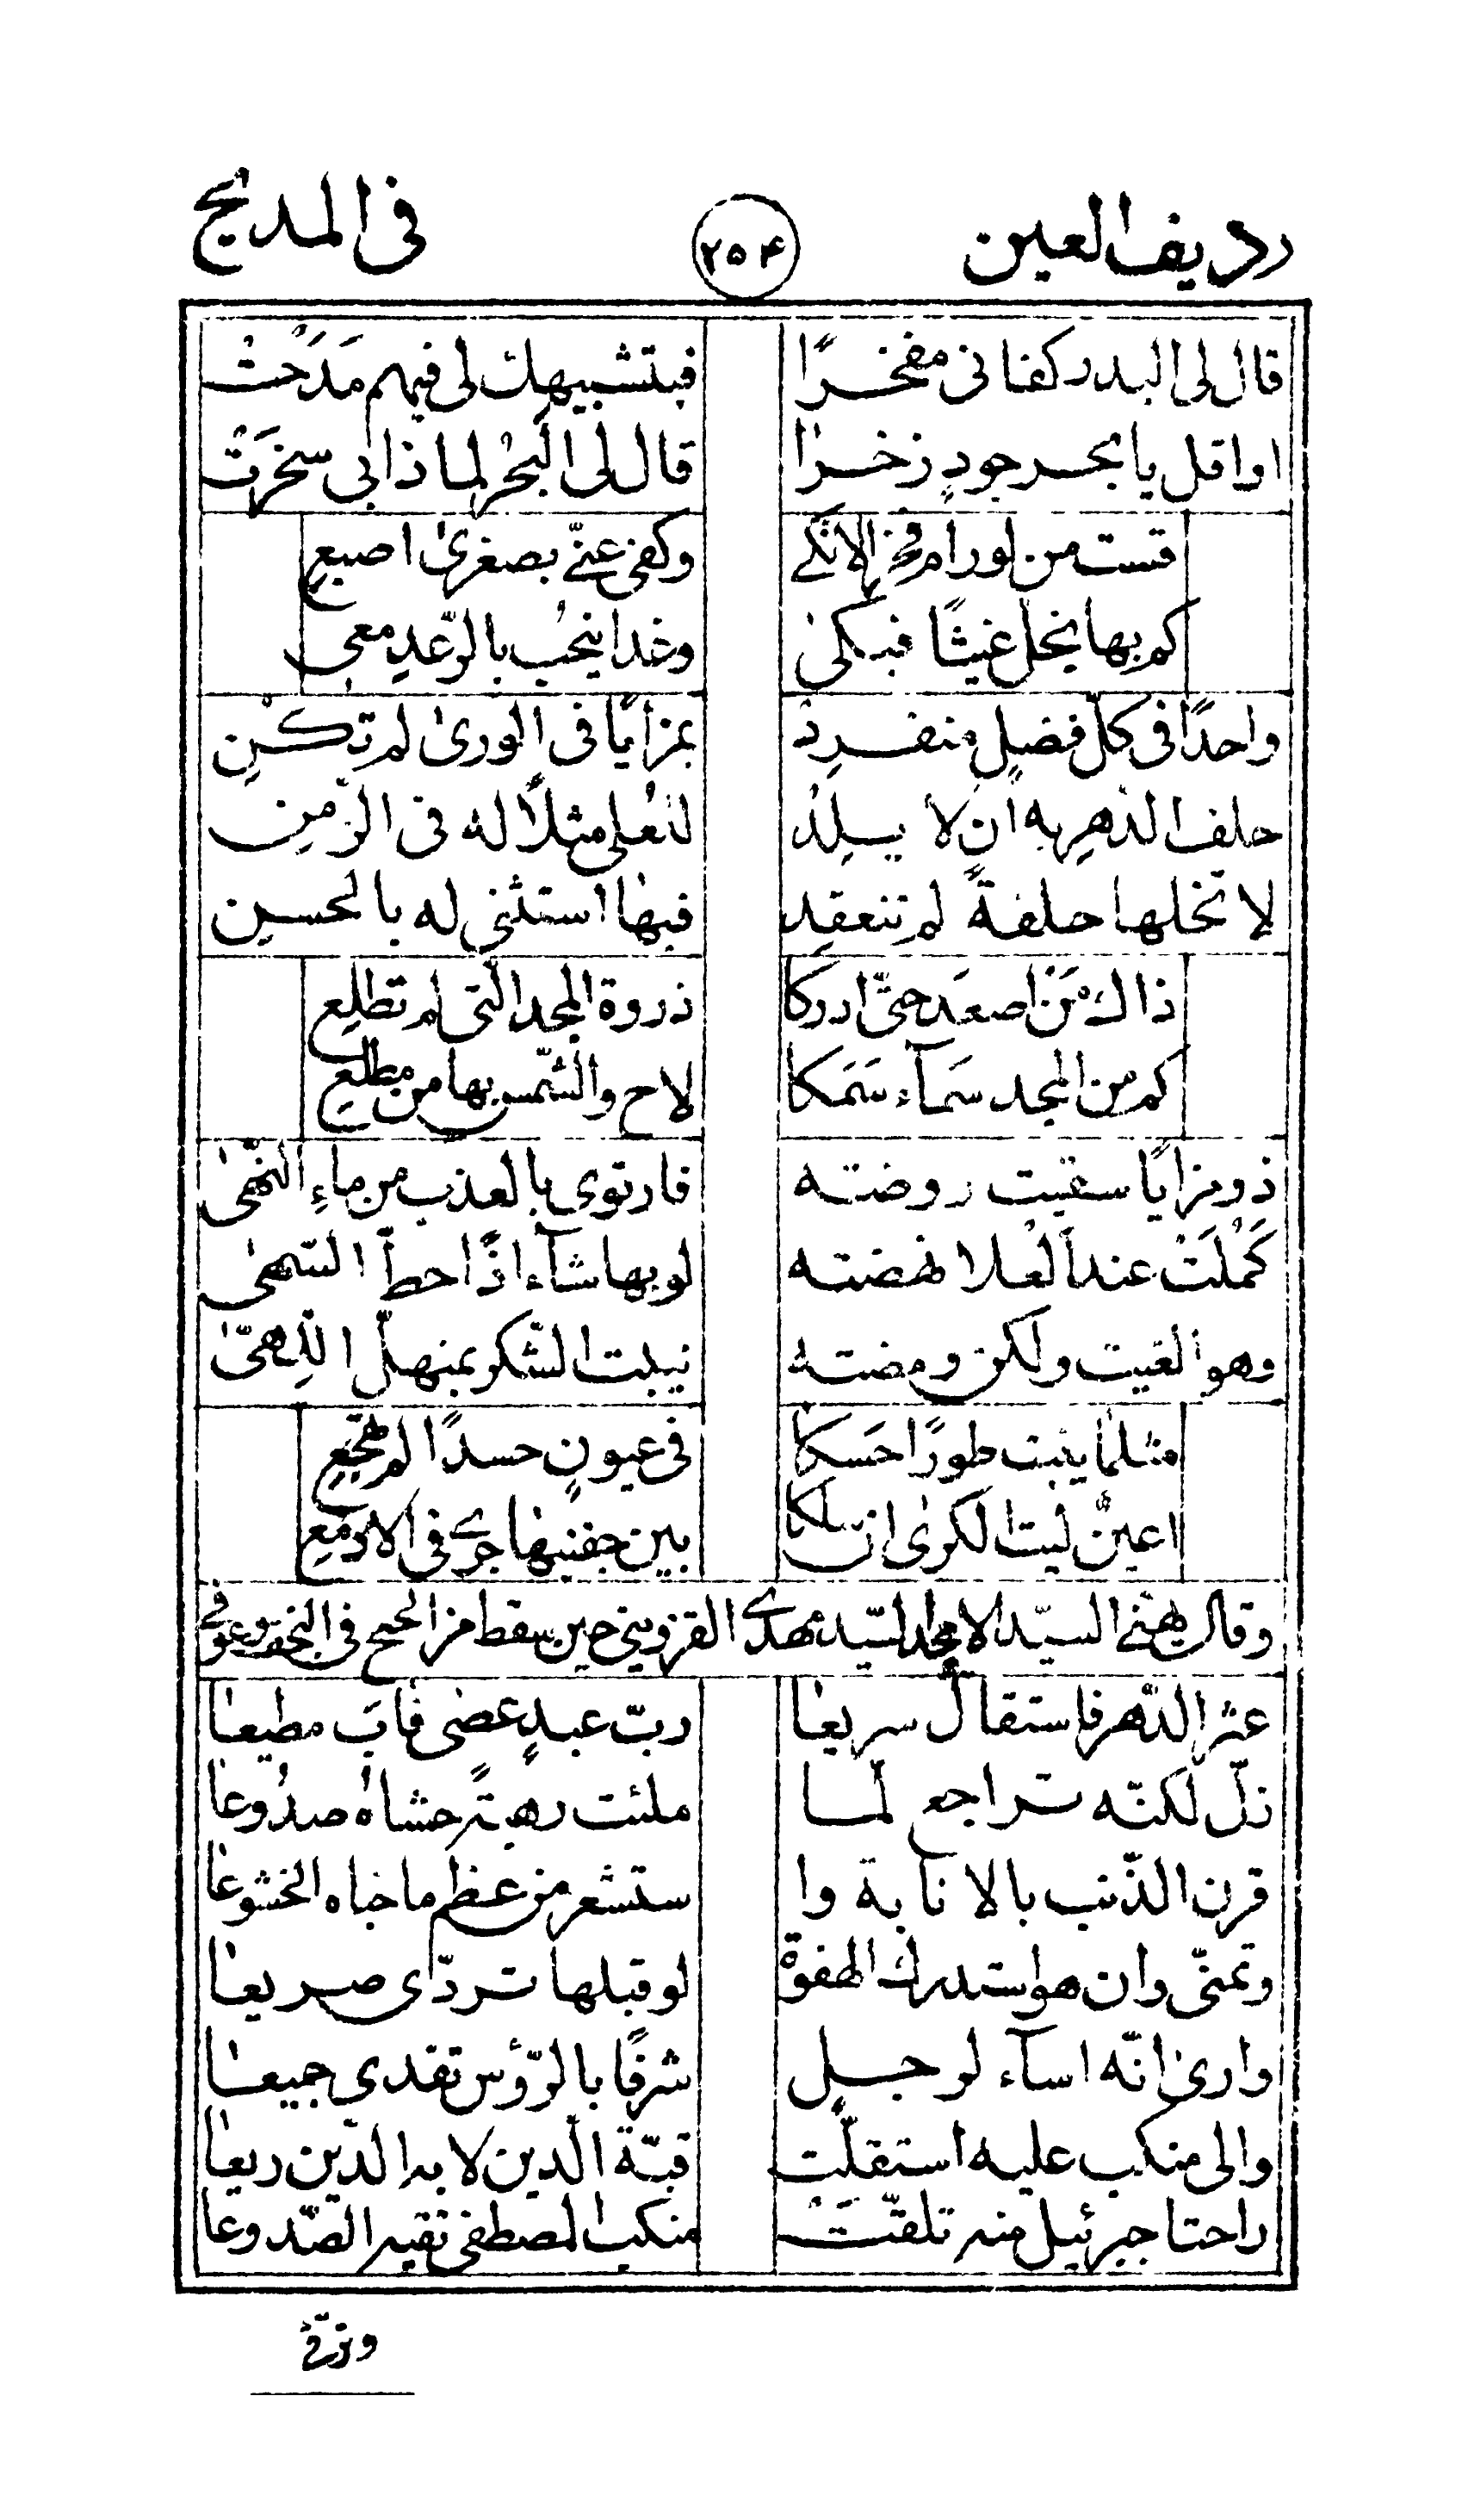 رديف العين ٢٥٤ في المديح
قال لى البدر كفانى مفخرًا فبتشبيهك لى فيهم مَدَحْتْ
او اقل يا بحر جودٍ زخرا قال لى البَحْر لما ذا بى سخرَتْ
قست من لو رام فخر الاتكى وكفى عنّى بصغرىٰ اصبعِ
كم بها بخل غيثًا فبكىٰ وغدا ينحُب بالرّعدِ معى
واحدًا فى كلّ فضلٍ منفردْ بمزايًا فى الورىٰ لم تكُنِ
حلف الدّهر به ان لا يلِدْ لِعُلى مثلًا له فى الزّمنِ
لا تخلها حلفةً لم تنعقد فبها استثنىٰ له بالحسين
ذاك مَن اصعَد حتّى ادركا ذروة المجد الّتى لم تطلعِ
كم من المجد سَمآء سَمَكا لاح والشّمس بها من مطلعِ
ذو مزايًا سقيت روضته فارتوى بالعذب من ماءِ النّهىٰ
كَمُلَتْ عند العُلا نهضته لو بها شآء اذًا حطّ السّهىٰ
وهو الغيث ولكن ومضته نيبت الشّكر بمنهلّ اللّهىٰ
مثلما ينبت طورًا حَسَكا فى عيونٍ حسدًا لم تهجعِ
اعينٌ ليت الكرىٰ ان سلكا بين جفنيها جرى فى الادمُعِ
وقال يهنى السيّد الامجد السيّد مهدى القزوينى حين سقط من الحج فى النجف وعوفى
عثر الدّهر فاستقال سريعا ربّ عبدٍ عصٰى فآبَ مطيعا
زلّ لكنّه تراجع لمّا ملئت رهبةً حشاه صدوعا
قرن الذّنب بالانابة وا ستشعر من عظم ما جناه الخشوعا
وتمنّى وان هو استدرك الهفوة لو قبلها تردّى صريعا
وارىٰ انّه اسآء لرجلٍ شرفًا بالرّؤس تفدى جميعا
والى منكب عليه استقلّت قبّة الدين لا به الدّين ريعا
راحتا جبرئيل منه تلقّتْ منكب المصطفى تقيه الصّدوعا